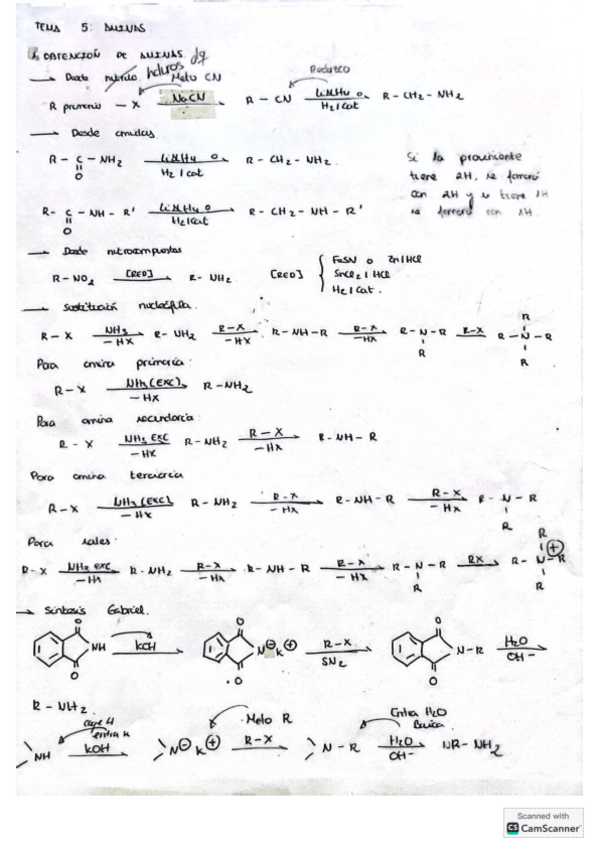 TEMA 5: AMINAS
1. OBTENCIÓN DE AMINAS.
→ Desde nitrilo haluros Meto CN Reduzco
R primario — X NaCN→ R — CN LiAlH4 o H2/cat→ R — CH2 — NH2
→ Desde amidas
R — C — NH2 LiAlH4 o H2/cat→ R — CH2 — NH2.
O
Si la proveniente
tiene 2H, se formará
con 2H y si tiene 1H
se formará con 1H.
R — C — NH — R' LiAlH4 o H2/cat→ R — CH2 — NH — R'
O
→ Desde nitrocompuestos
R — NO2 [RED]→ R — NH2 [RED] { Fe Sn o Zn/HCl
SnCl2 / HCl
H2/cat.
→ Sustitución nucleófila.
R — X NH3 -HX→ R — NH2 R-X -HX→ R — NH — R R-X -HX→ R — N — R R-X→ R — N — R
R R R
Para amina primaria:
R — X NH3 (EXC) -HX→ R — NH2
Para amina secundaria:
R — X NH3 EXC -HX→ R — NH2 R-X -HX→ R — NH — R
Para amina terciaria
R — X NH3 (EXC) -HX→ R — NH2 R-X -HX→ R — NH — R R-X -HX→ R — N — R
R
Para sales:
R — X NH3 exc -HX→ R — NH2 R-X -HX→ R — NH — R R-X -HX→ R — N — R RX→ R — N⊕ — R
R R R
→ Síntesis Gabriel.
O NH O KOH→ O N⊖ K⊕ O R-X SN2→ O N — R O H2O OH-→
R — NH2.
coge H entra K Meto R Entra H2O Básica
NH KOH→ N⊖ K⊕ R-X→ N — R H2O OH-→ NR — NH2
Scanned with
CS CamScanner